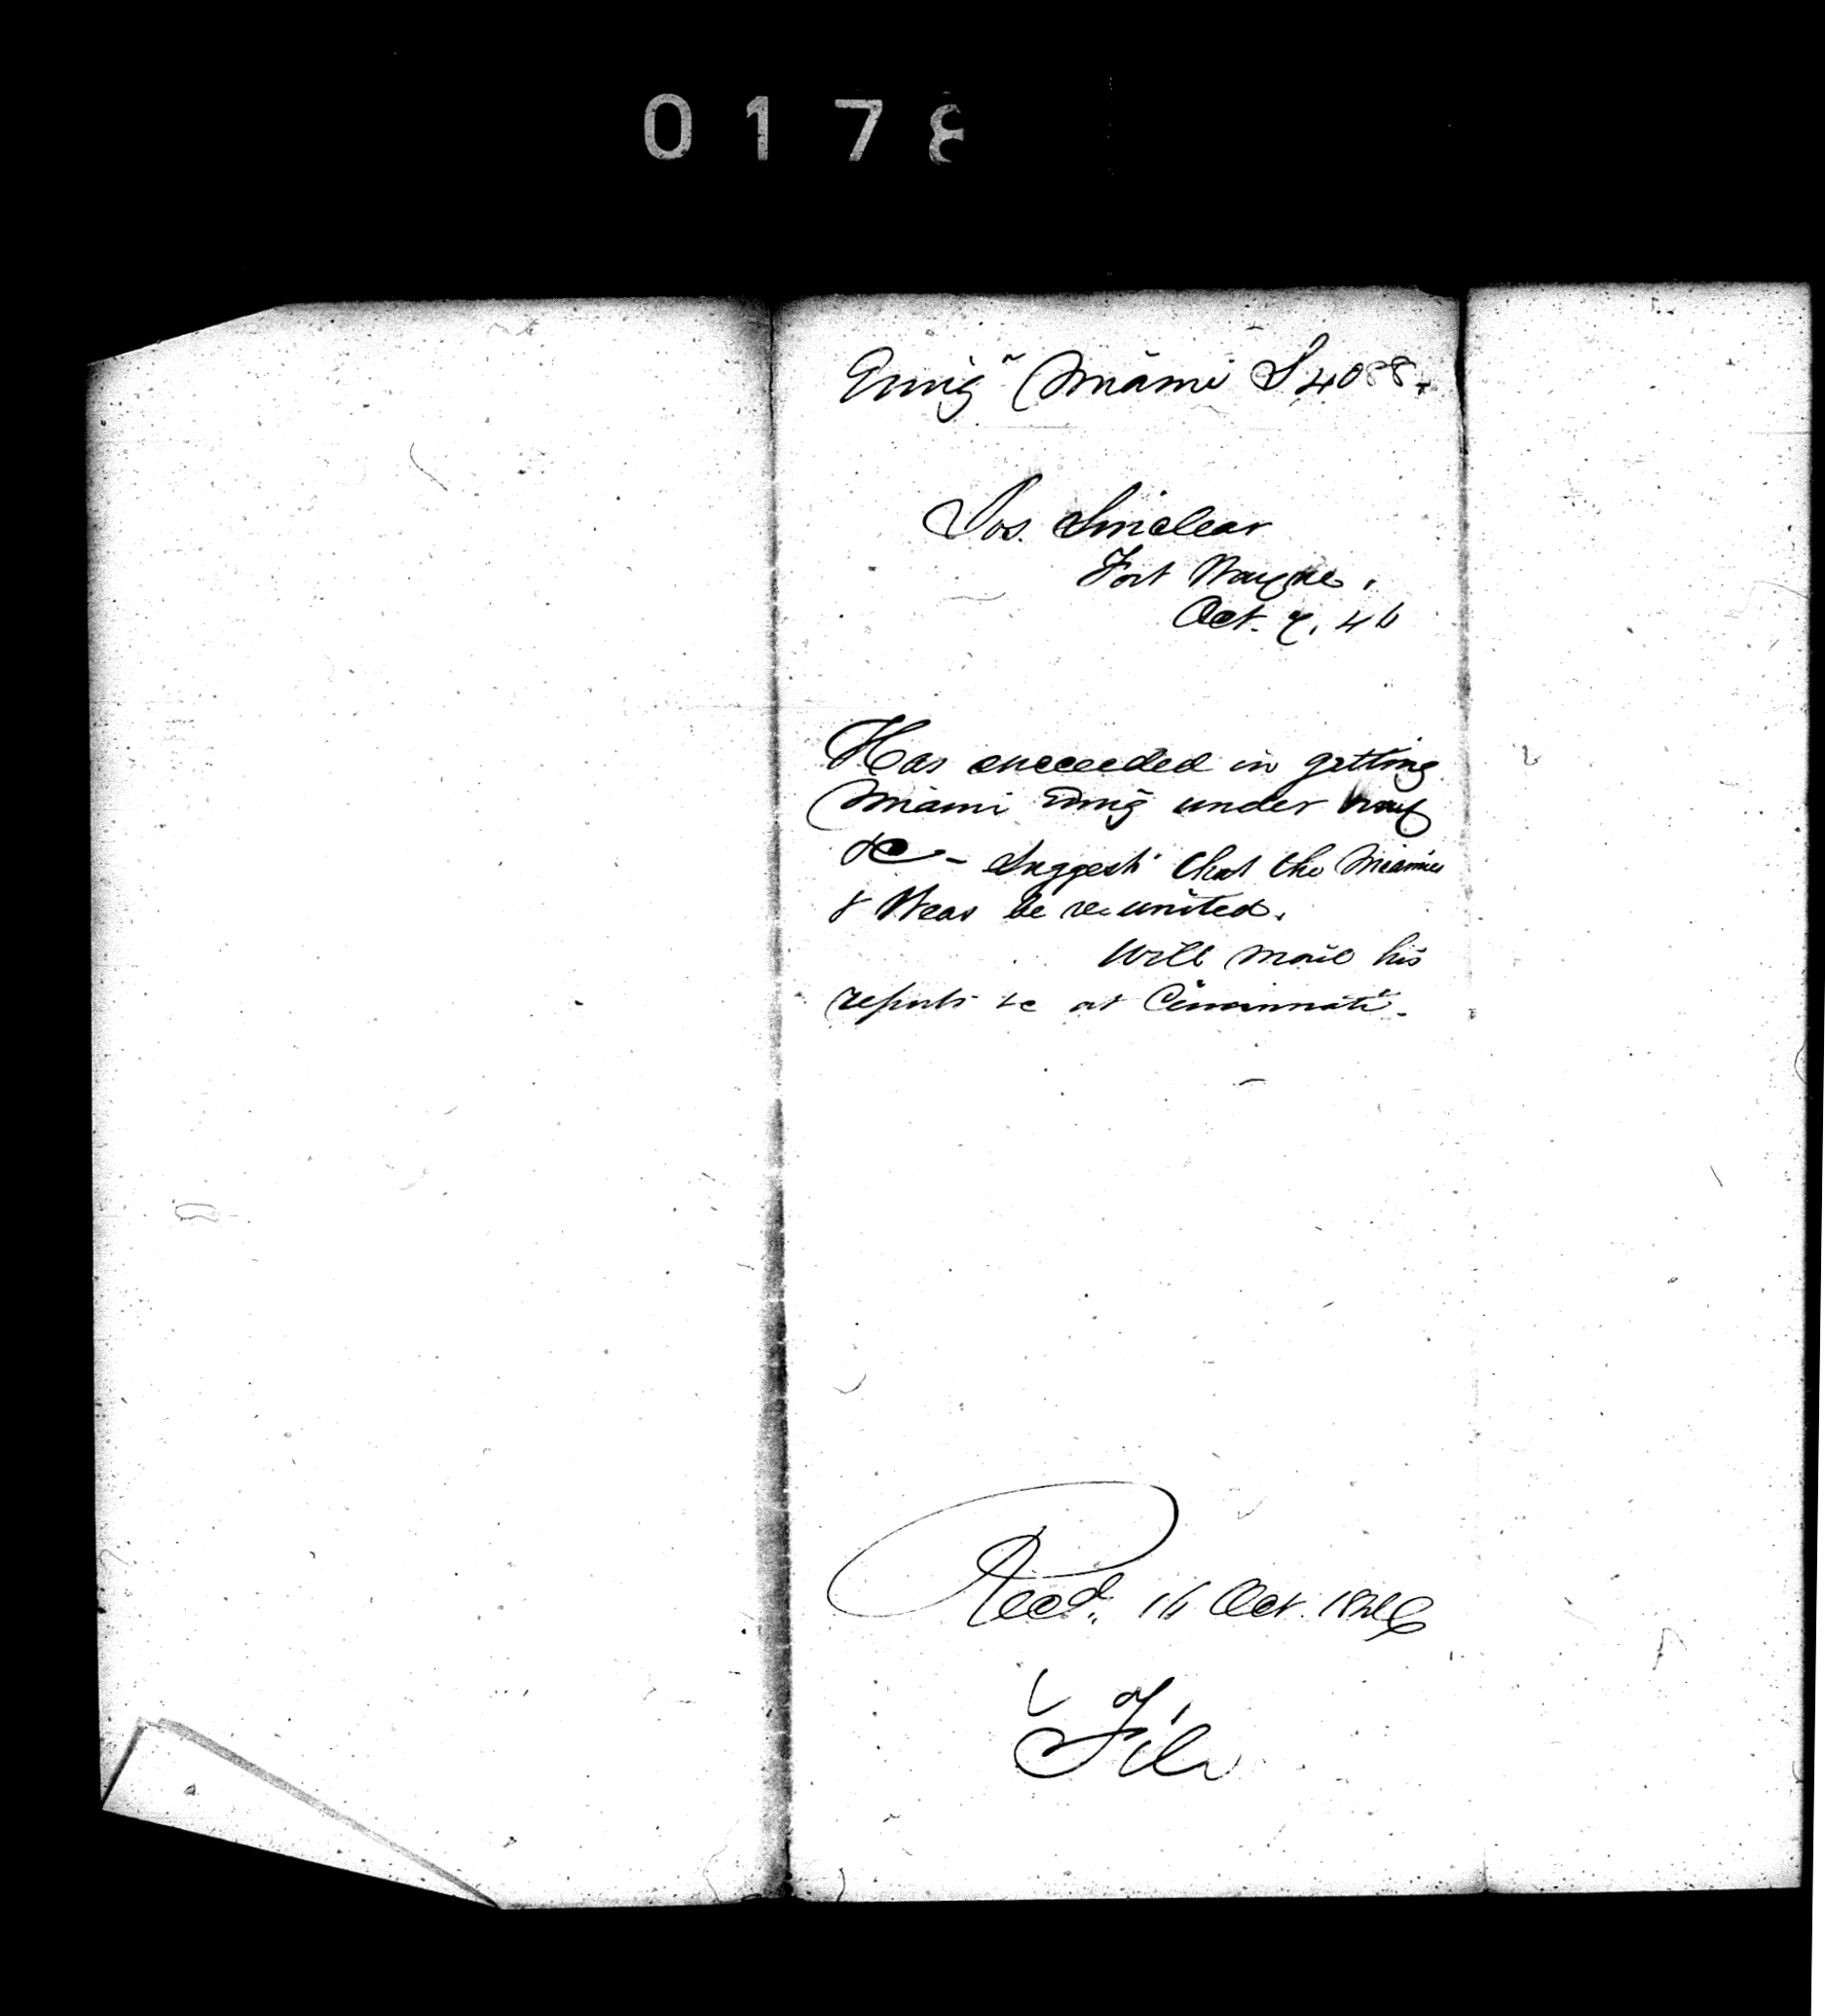 0178
Emign Miami S 4088.
Jos. Sinclear
Fort Wayne,
Oct. 7, 46
Has succeeded in getting
Miami Emign under way
&c - Suggests that the Miamies
& Weas be re-united.
Will mail his
reports &c at Cincinnati.
Recd. 16 Oct. 1846
File